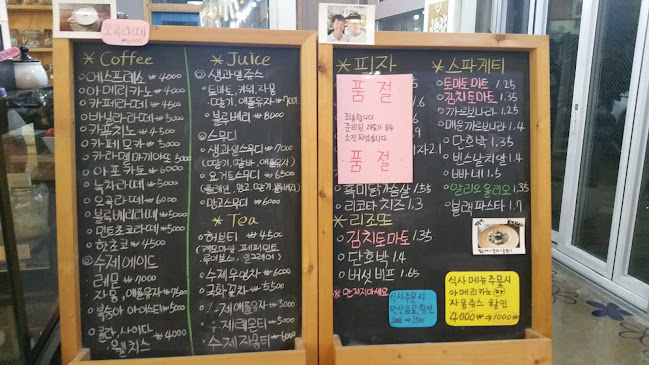 오곡라떼
₩5000
* Coffee
에스프레소 ₩4000
아메리카노 ₩4000
카페라떼 ₩4500
바닐라라떼 ₩5000
카푸치노 ₩4500
카페모카 ₩5000
카라멜마끼아또 5000
아포카토 ₩6000
녹차라떼 ₩5000
오곡라떼 ₩6000
블루베리라떼 ₩5000
민트초코라떼 5000
핫초코 ₩4500
수제에이드
레몬 ₩7000
자몽, 애플유자 ₩7500
복숭아 아이스티 ₩5000
콜라, 사이다 ₩4000
웰치스
* Juice
생과일쥬스
토마토, 키위, 자몽
딸기, 애플유자 ₩7000
블루베리 ₩8000
스무디
생과일스무디 ₩7000
(딸기, 딸바, 애플유자)
요거트스무디 ₩6500
(플레인, 망고, 딸기, 블루베리)
망고스무디 ₩6000
* Tea
허브티 ₩4500
(캐모마일, 페퍼민트,
루이보스, 얼그레이)
수제유자차 ₩6000
국화꽃차 ₩5500
수제애플유자 ₩
수제레몬티 ₩6000
수제자몽티 ₩6000
* 피자
품절
죄송합니다
준비된 재료가 모두
소진 되었습니다.
품절
흑미닭가슴살 1.55
리코타치즈 1.3
* 리조또
김치토마토 1.35
단호박 1.4
버섯비프 1.65
* 만지지마세요
식사주문시
탄산음료 할인
2500
* 스파게티
토마토미트 1.25
김치토마토 1.35
까르보나라 1.25
매운까르보나라 1.4
단호박 1.35
빈스날치알 1.4
빠네 1.5
알리오올리오 1.35
블랙파스타 1.7
식사 메뉴주문시
아메리카노
자몽쥬스 할인
4000₩→1000₩